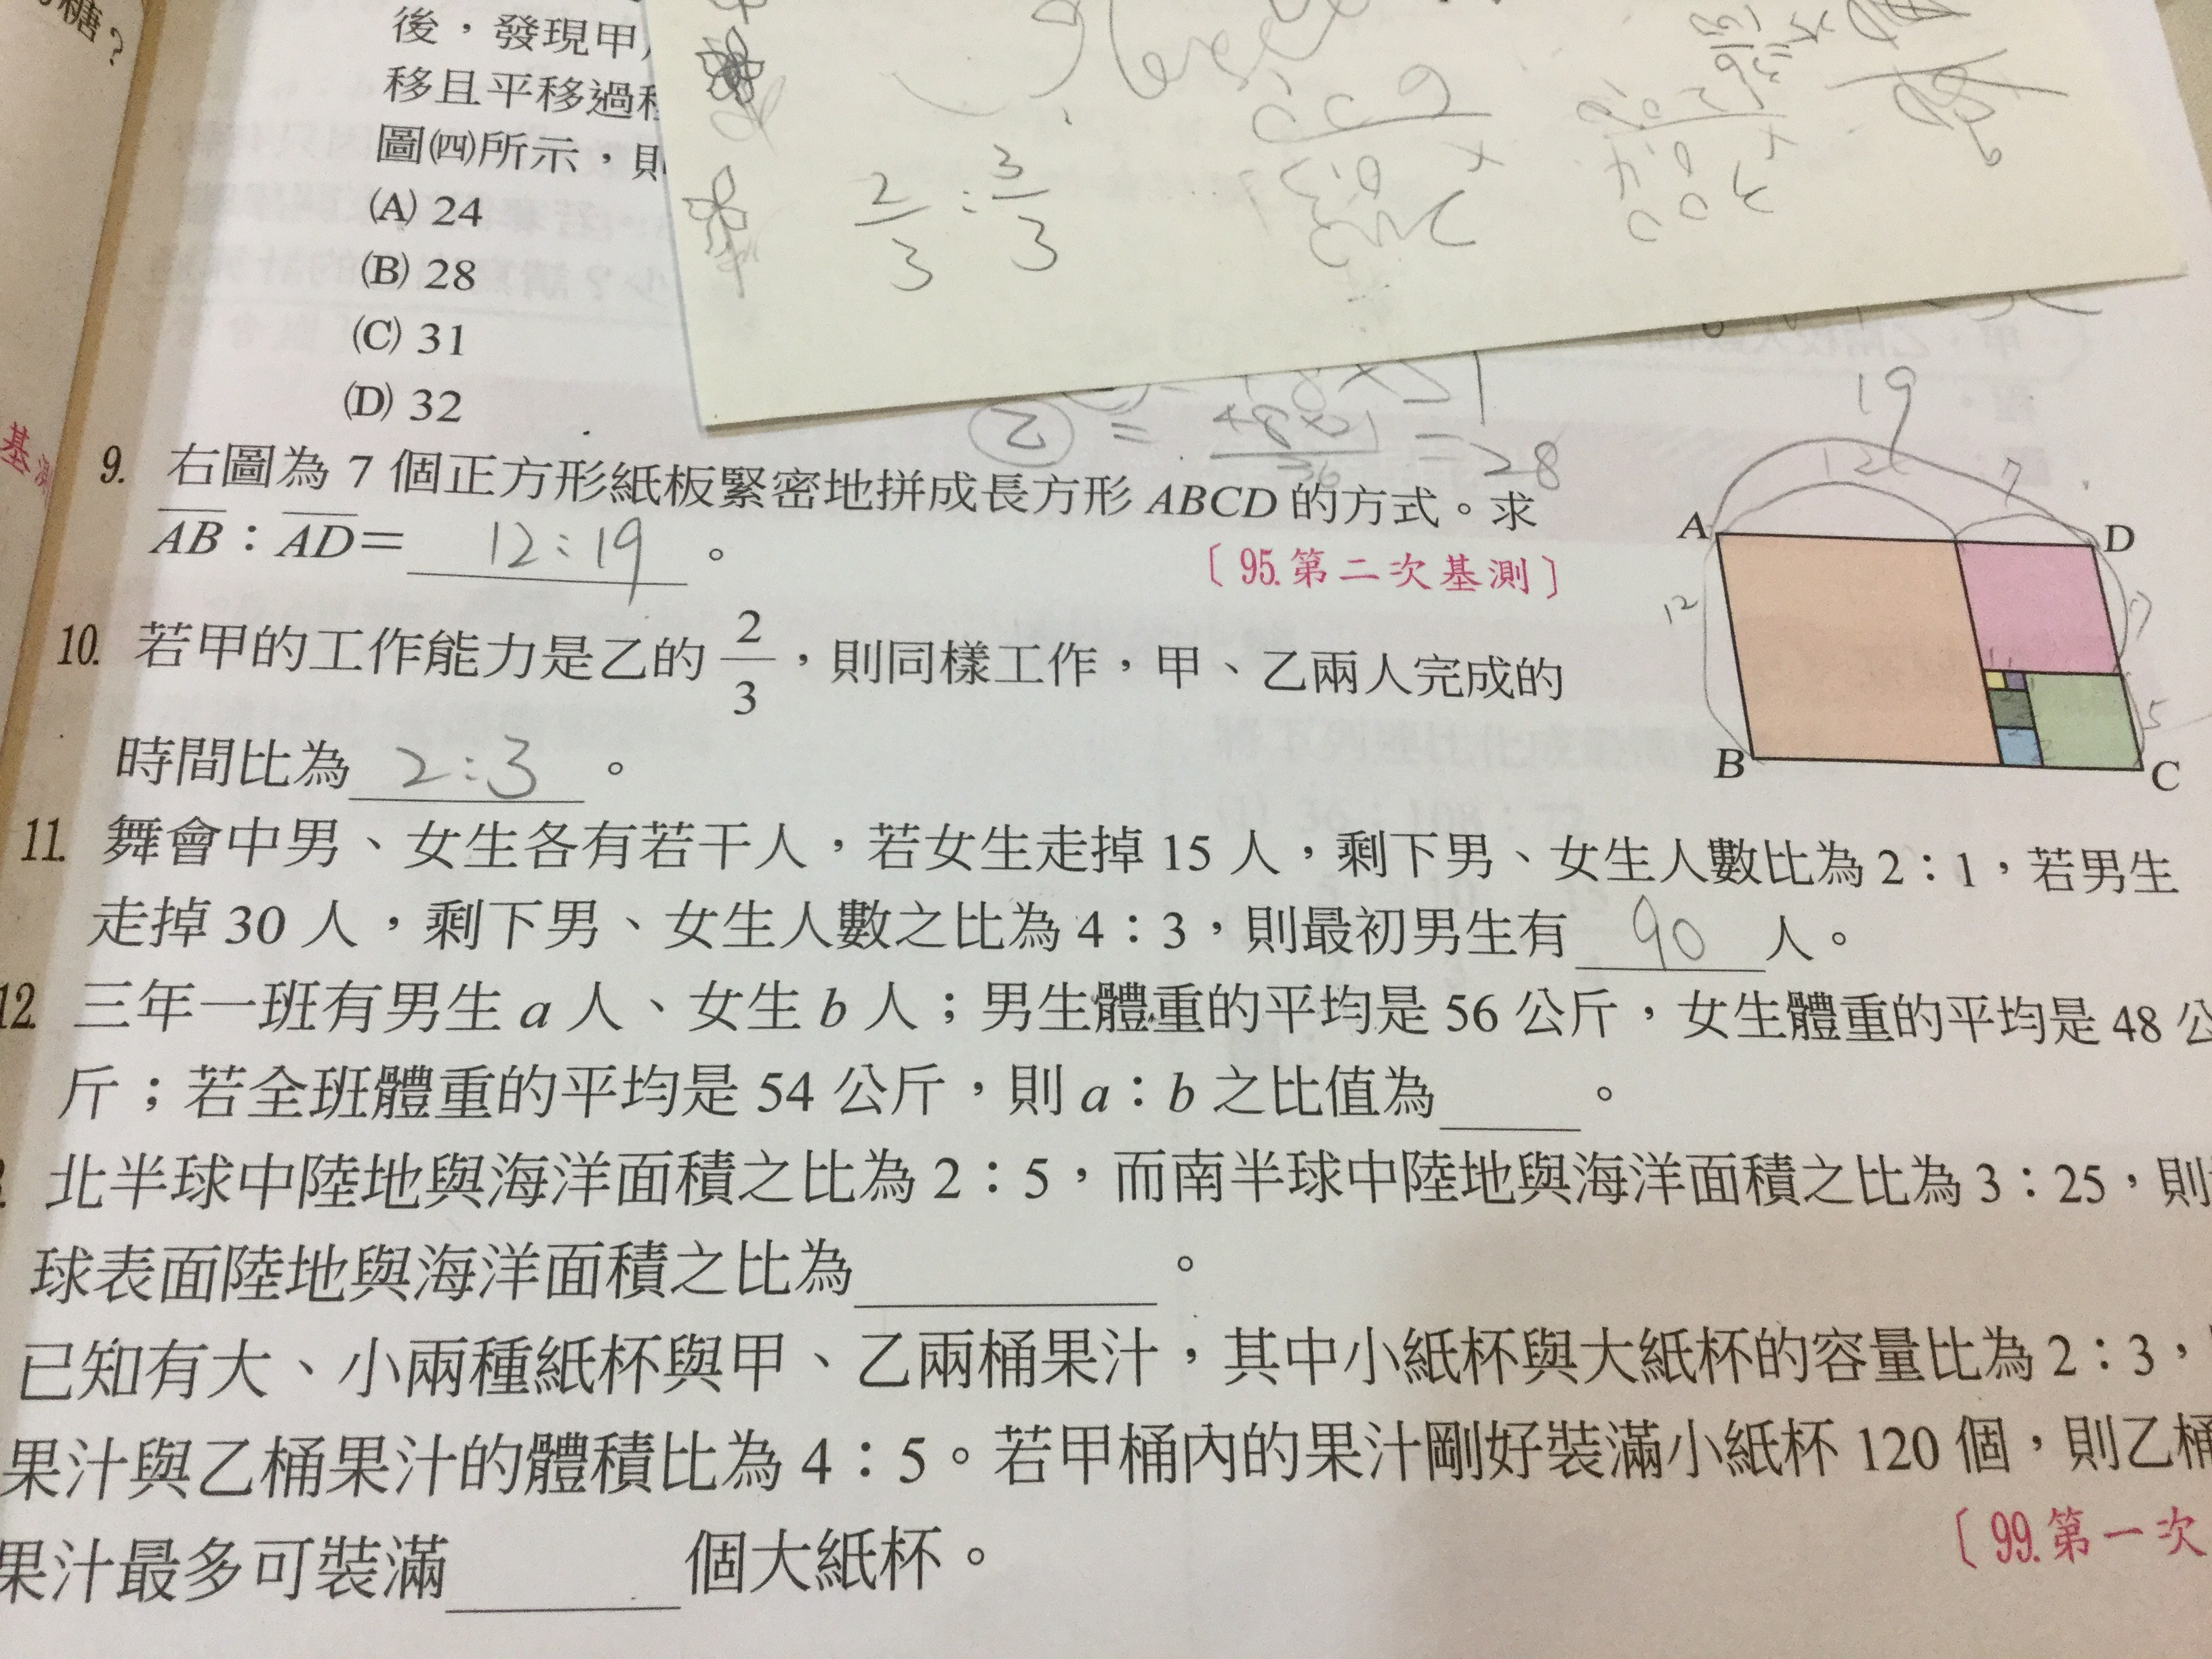 糖？
後，發現甲
移且平移過程
圖㈣所示，則
(A) 24
(B) 28
(C) 31
(D) 32
2/3 : 3/3
乙 = 48×21/36 = 28
基測
9. 右圖為 7 個正方形紙板緊密地拼成長方形 ABCD 的方式。求
AB：AD＝ 12:19 。
〔95.第二次基測〕
19
12 7
A D
12 7
1 1
2
2 5
B C
10. 若甲的工作能力是乙的 2/3，則同樣工作，甲、乙兩人完成的
時間比為 2:3 。
11. 舞會中男、女生各有若干人，若女生走掉 15 人，剩下男、女生人數比為 2：1，若男生
走掉 30 人，剩下男、女生人數之比為 4：3，則最初男生有 90 人。
12. 三年一班有男生 a 人、女生 b 人；男生體重的平均是 56 公斤，女生體重的平均是 48 公
斤；若全班體重的平均是 54 公斤，則 a：b 之比值為 。
北半球中陸地與海洋面積之比為 2：5，而南半球中陸地與海洋面積之比為 3：25，則
球表面陸地與海洋面積之比為 。
已知有大、小兩種紙杯與甲、乙兩桶果汁，其中小紙杯與大紙杯的容量比為 2：3，
果汁與乙桶果汁的體積比為 4：5。若甲桶內的果汁剛好裝滿小紙杯 120 個，則乙桶
果汁最多可裝滿 個大紙杯。
〔99.第一次